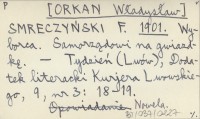 P [ORKAN Władysław] P
SMRECZYŃSKI F. 1901. Wy-
borca. Samorządowi na gwiazd-
kę. — Tydzień (Lwów), Doda-
tek literacki Kurjera Lwowskie-
go, 9, nr 3: 18-19.
Opowiadanie Nowela.